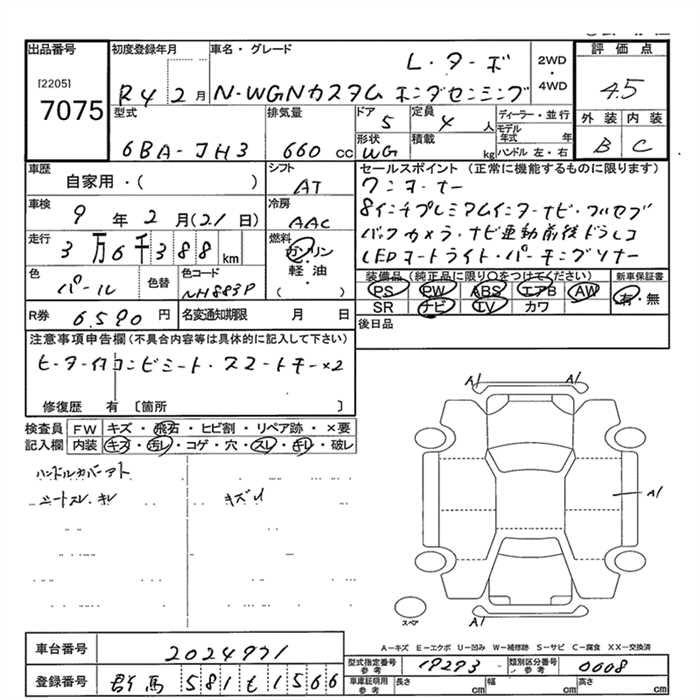 出品番号 [2205] 7075
初度登録年月 R4 2月
車名・グレード L・ターボ
N-WGNカスタム ホンダセンシング
2WD・4WD
評価点 4.5
外装 B 内装 C
型式 6BA-JH3
排気量 660cc
ドア 5
定員 4人
形状 WG
積載 kg
ディーラー・並行
モデル年式 年
ハンドル 左・右
車歴 自家用・( )
シフト AT
車検 9年2月(21日)
冷房 AAC
走行 3万6千388km
燃料 ガソリン・軽油・( )
色 パール
色替
色コード NH883P
R券 6,590円
名変通知期限 月 日
セールスポイント (正常に機能するものに限ります)
ワンオーナー
8インチプレミアムインターナビ・フルセグ
バックカメラ・ナビ連動前後ドラレコ
LEDヘッドライト・パーキングソナー
装備品(純正品に限り○をつけてください)
PS PW ABS エアB AW
SR ナビ TV カワ
新車保証書 有・無
後日品
注意事項申告欄(不具合内容等は具体的に記入して下さい)
ヒーター付コンビシート・スマートキー×2
修復歴 有 〔箇所 〕
検査員記入欄
FW キズ・飛石・ヒビ割・リペア跡・×要
内装 キズ・汚レ・コゲ・穴・スレ・キレ・破レ
ハンドルカバーアト
シートスレ・キレ
キズU
A1 A1
A1
A1
スペア
A－キズ E－エクボ U－凹み W－補修跡 S－サビ C－腐食 XX－交換済
車台番号 2024931
登録番号 群馬 581 を 1566
型式指定番号 参考 19273
類別区分番号 参考 0008
車庫証明用 参考 長さ cm 幅 cm 高さ cm